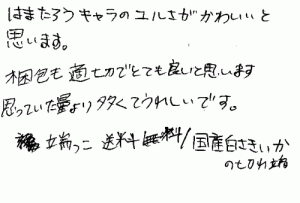 はまたろうキャラのユルさがかわいいと
思います。
梱包も適切でとても良いと思います
思っていた量より多くてうれしいです。
立端っこ 送料無料/国産白さきいか
の切れ端